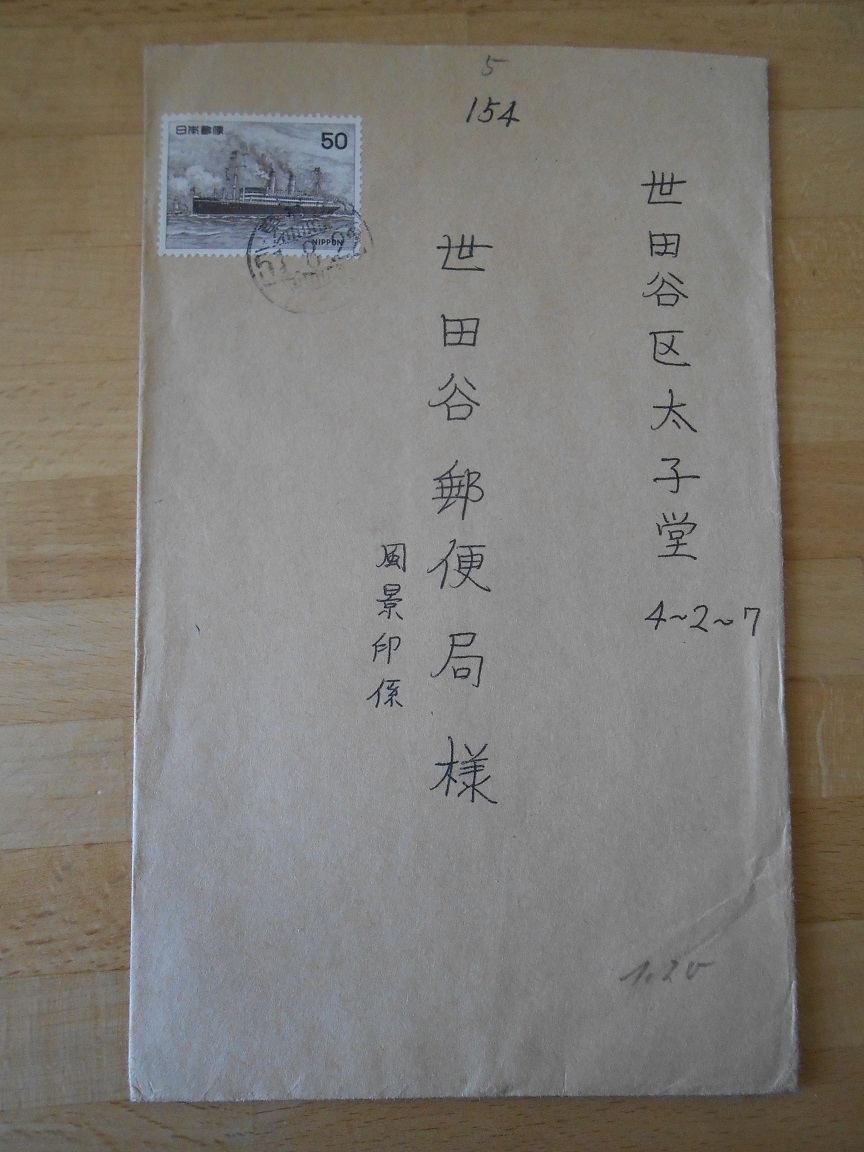 5
154
日本郵便
50
NIPPON
世田谷区太子堂
4~2~7
世田谷郵便局様
風景印係
1.20